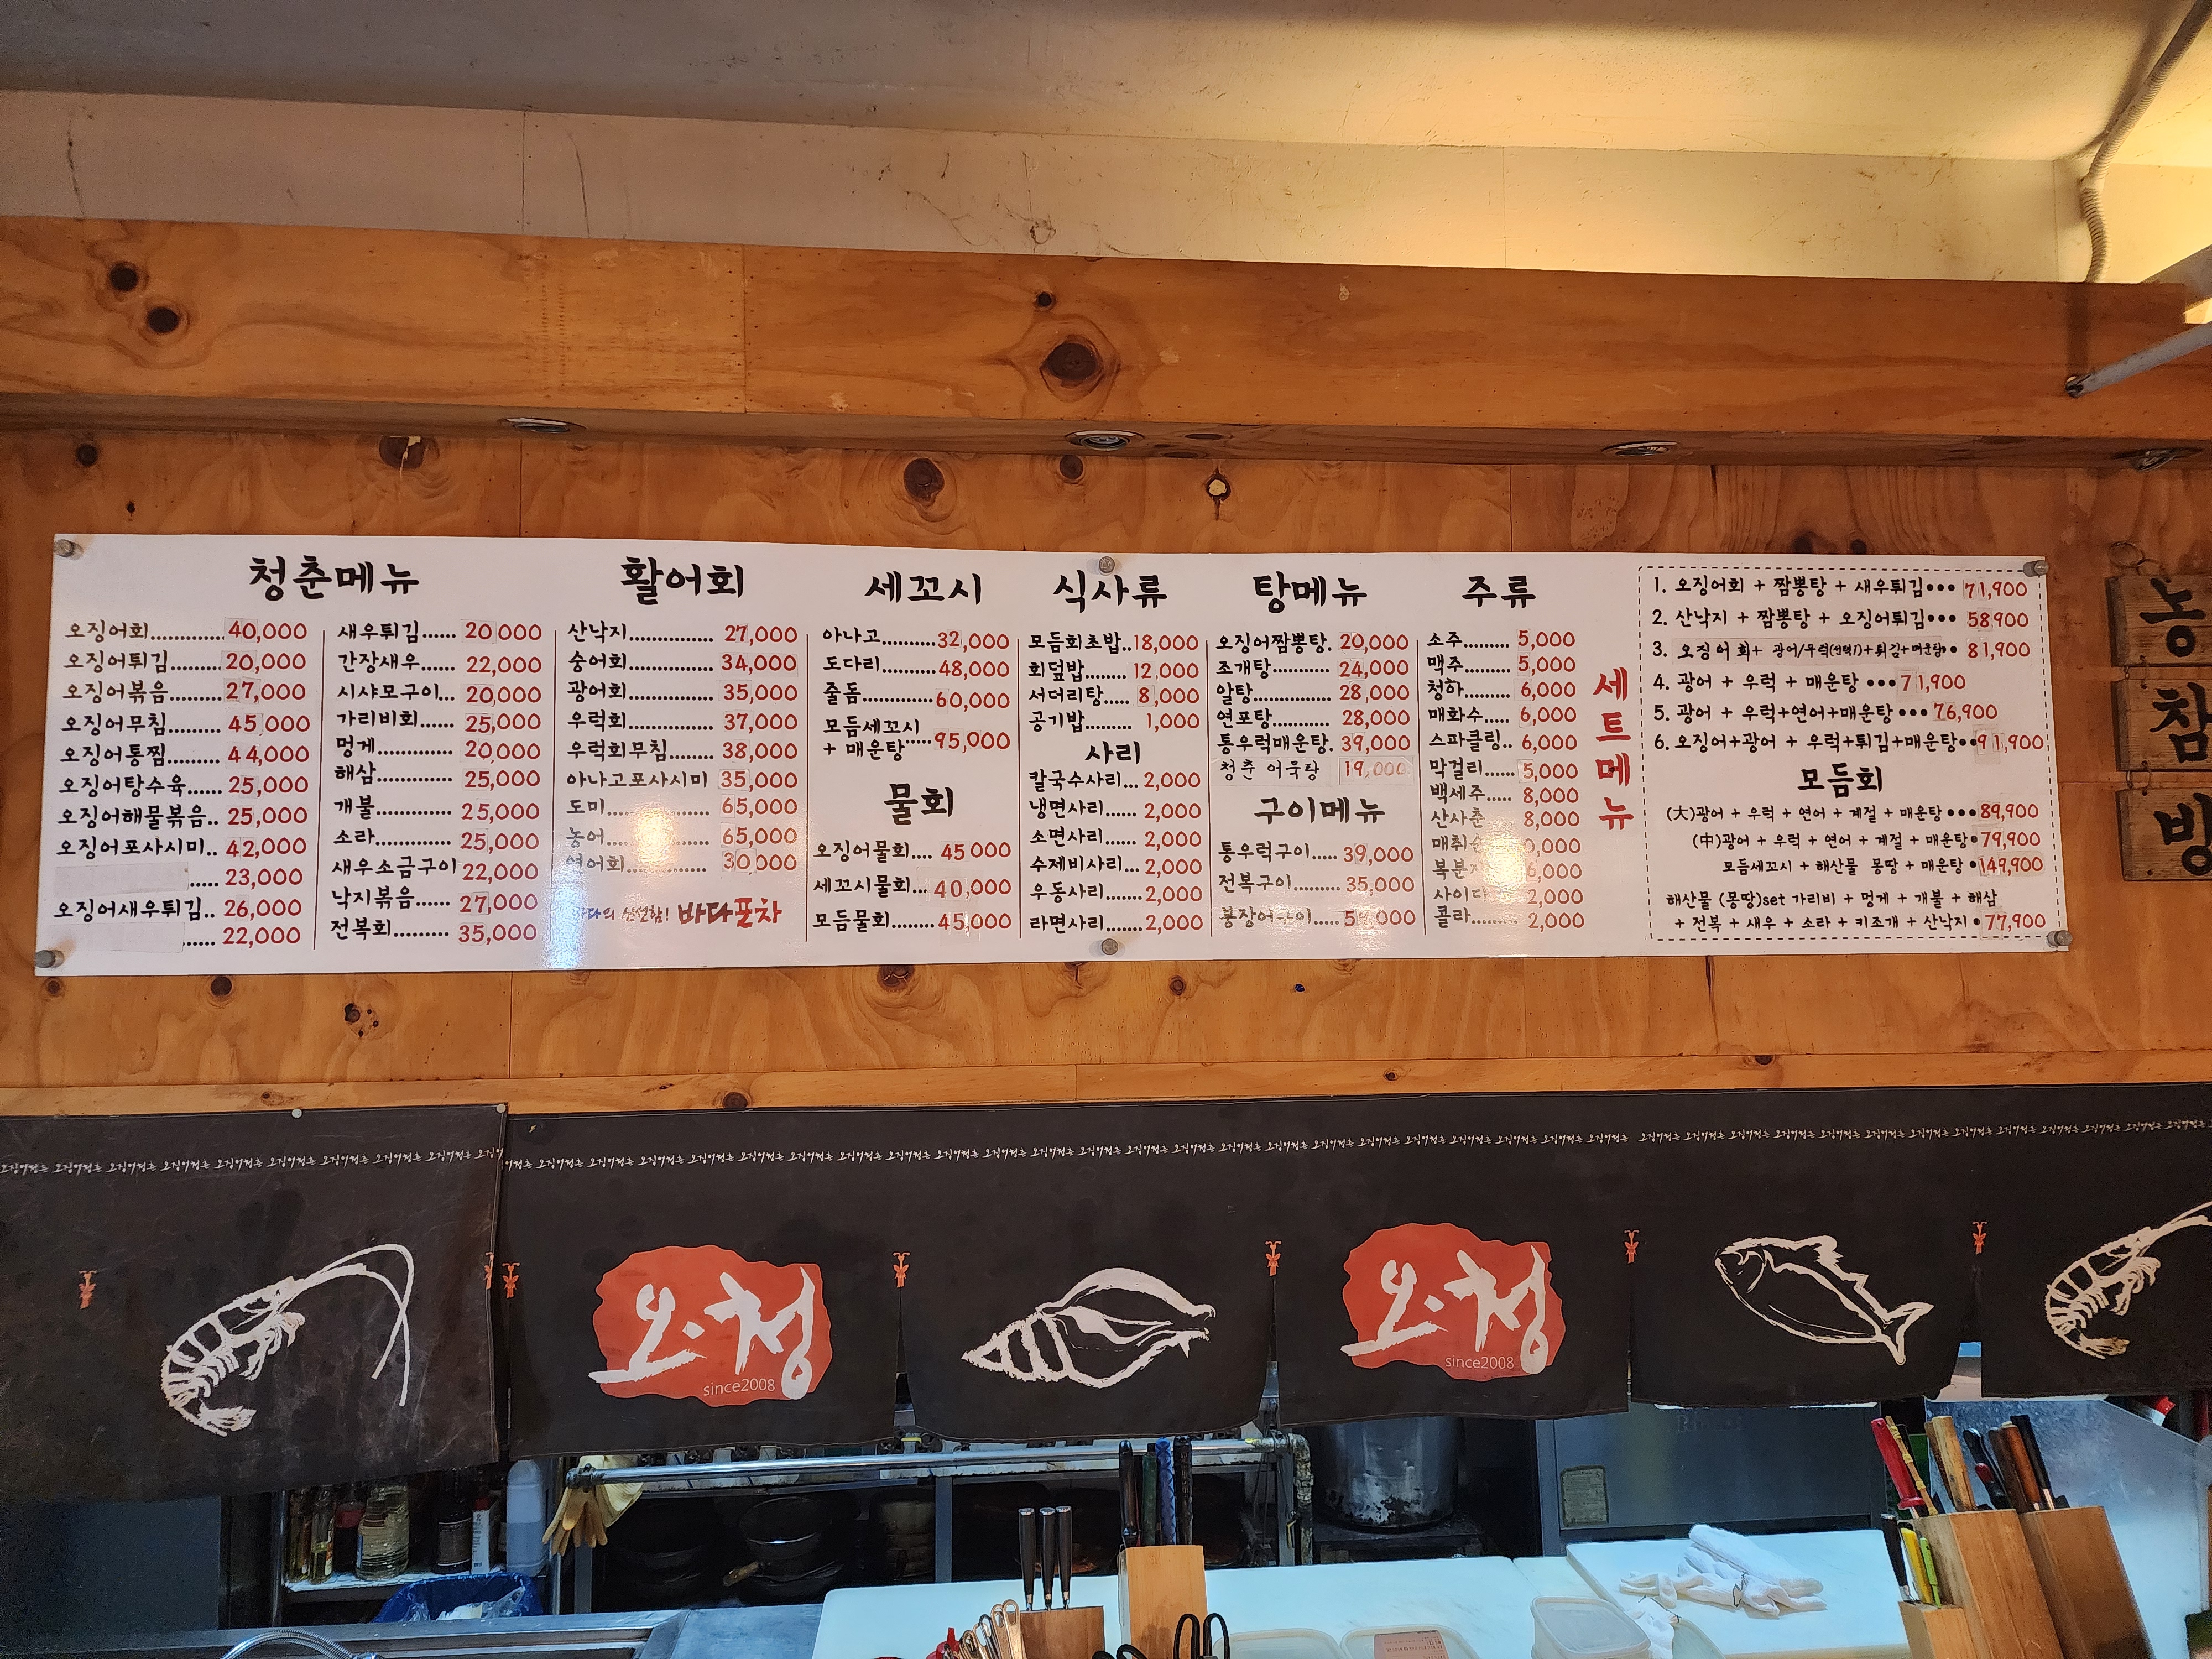 청춘메뉴
오징어회............. 40,000
오징어튀김......... 20,000
오징어볶음......... 27,000
오징어무침......... 45,000
오징어통찜......... 44,000
오징어탕수육...... 25,000
오징어해물볶음.. 25,000
오징어포사시미.. 42,000
..... 23,000
오징어새우튀김.. 26,000
...... 22,000
새우튀김...... 20,000
간장새우...... 22,000
시샤모구이... 20,000
가리비회...... 25,000
멍게............... 20,000
해삼............... 25,000
개불............... 25,000
소라............... 25,000
새우소금구이 22,000
낙지볶음....... 27,000
전복회......... 35,000
활어회
산낙지............... 27,000
숭어회............... 34,000
광어회............... 35,000
우럭회............... 37,000
우럭회무침........ 38,000
아나고포사시미 35,000
도미.................. 65,000
농어.................. 65,000
연어회............... 30,000
바다의 신선함! 바다포차
세꼬시
아나고......... 32,000
도다리......... 48,000
줄돔............ 60,000
모듬세꼬시
+ 매운탕..... 95,000
물회
오징어물회.... 45,000
세꼬시물회... 40,000
모듬물회....... 45,000
식사류
모듬회초밥.. 18,000
회덮밥........ 12,000
서더리탕..... 8,000
공기밥......... 1,000
사리
칼국수사리... 2,000
냉면사리...... 2,000
소면사리...... 2,000
수제비사리... 2,000
우동사리...... 2,000
라면사리....... 2,000
탕메뉴
오징어짬뽕탕. 20,000
조개탕............ 24,000
알탕............... 28,000
연포탕............ 28,000
통우럭매운탕. 39,000
청춘 어묵탕 19,000
구이메뉴
통우럭구이..... 39,000
전복구이......... 35,000
붕장어구이..... 59,000
주류
소주......... 5,000
맥주......... 5,000
청하......... 6,000
매화수..... 6,000
스파클링.. 6,000
막걸리...... 5,000
백세주..... 8,000
산사춘 8,000
사이다 2,000
콜라......... 2,000
세트메뉴
1. 오징어회 + 짬뽕탕 + 새우튀김••• 71,900
2. 산낙지 + 짬뽕탕 + 오징어튀김••• 58,900
3. 오징어회+ 광어/우럭(선택1)+튀김+매운탕•• 81,900
4. 광어 + 우럭 + 매운탕 ••• 71,900
5. 광어 + 우럭+연어+매운탕 ••• 76,900
6. 오징어+광어 + 우럭+튀김+매운탕•• 91,900
모듬회
(大)광어 + 우럭 + 연어 + 계절 + 매운탕••• 89,900
(中)광어 + 우럭 + 연어 + 계절 + 매운탕• 79,900
모듬세꼬시 + 해산물 몽땅 + 매운탕 • 149,900
해산물 (몽땅)set 가리비 + 멍게 + 개불 + 해삼
+ 전복 + 새우 + 소라 + 키조개 + 산낙지 • 77,900
농
참
빙
오징어청춘 오징어청춘 오징어청춘 오징어청춘
오·청
since2008
오·청
since2008